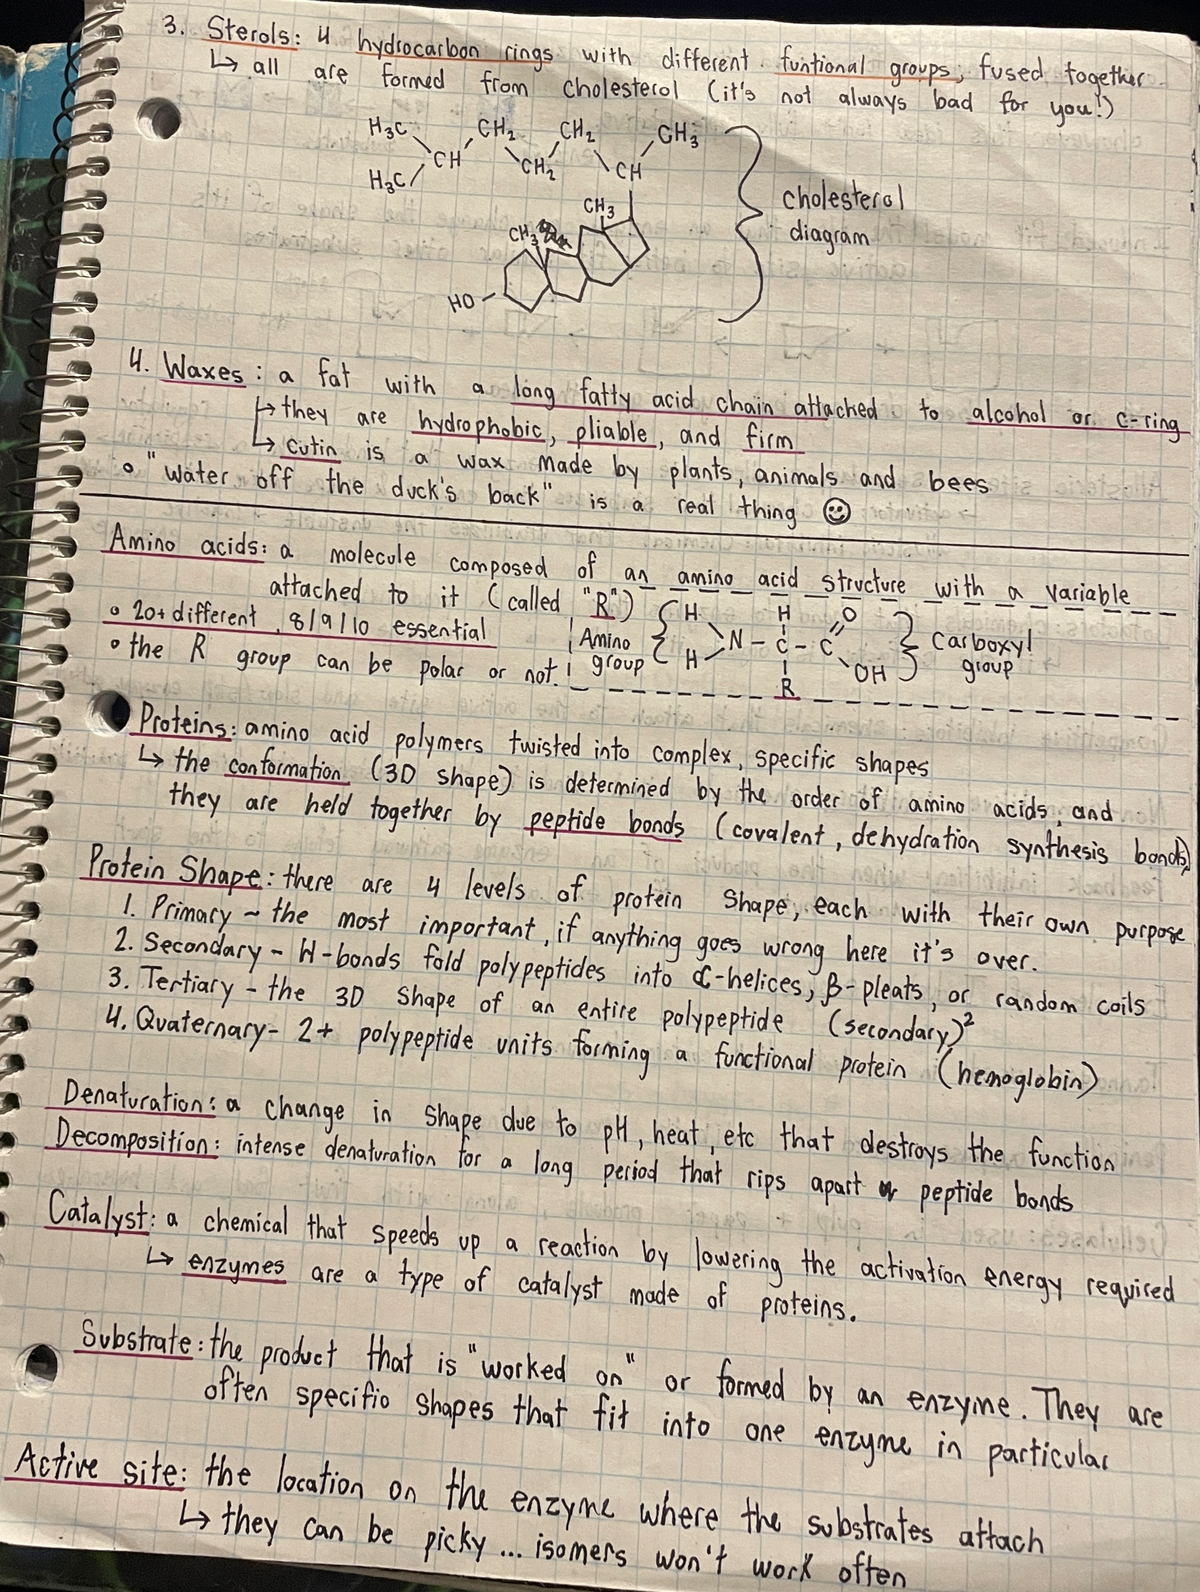 3. Sterols: 4 hydrocarbon rings with different funtional groups, fused together
↳ all are formed from cholesterol (it's not always bad for you!)
H₃C CH₂ CH₂ CH₃
CH CH₂ CH
H₃C
CH₃
CH₃
HO
cholesterol
diagram
4. Waxes: a fat with a long fatty acid chain attached to alcohol or c-ring
↳ they are hydrophobic, pliable, and firm
↳ cutin is a wax made by plants, animals and bees
o "water off the duck's back" is a real thing ☺
Amino acids: a molecule composed of an amino acid structure with a variable
attached to it (called "R")
o 20+ different, 8/9/10 essential
• the R group can be polar or not.
Amino
group
H H O
N - C - C
H OH
R
Carboxyl
group
Proteins: amino acid polymers twisted into complex, specific shapes
↳ the conformation (3D shape) is determined by the order of amino acids, and
they are held together by peptide bonds (covalent, dehydration synthesis bonds)
Protein Shape: there are 4 levels of protein shape, each with their own purpose
1. Primary ~ the most important, if anything goes wrong here it's over.
2. Secondary - H-bonds fold polypeptides into α-helices, β-pleats, or random coils
3. Tertiary - the 3D shape of an entire polypeptide (secondary)²
4. Quaternary - 2+ polypeptide units forming a functional protein (hemoglobin)
Denaturation: a change in shape due to pH, heat, etc that destroys the function
Decomposition: intense denaturation for a long period that rips apart peptide bonds
Catalyst: a chemical that speeds up a reaction by lowering the activation energy required
↳ enzymes are a type of catalyst made of proteins.
Substrate: the product that is "worked on" or formed by an enzyme. They are
often specific shapes that fit into one enzyme in particular
Active site: the location on the enzyme where the substrates attach
↳ they can be picky... isomers won't work often